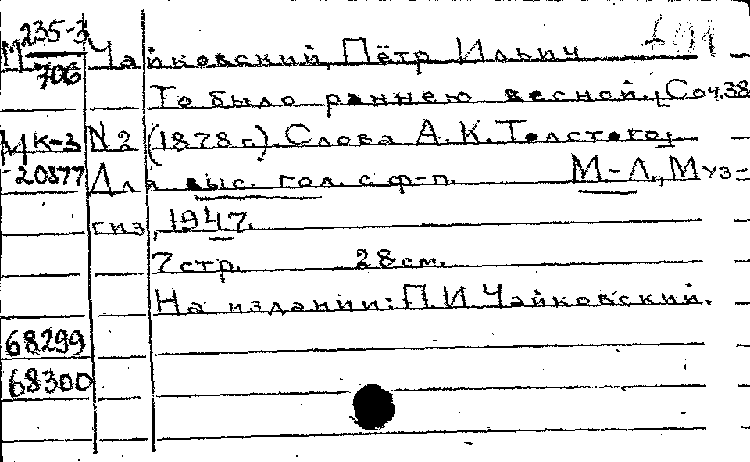 М 235-3 Чайковский, Пётр Ильич
706
То было раннею весной, Соч. 38
МК-3 N2 (1878 г). Слова А. К. Толстого,
20877 Для выс. гол. с ф-п. М.-Л., Муз-
гиз, 1947.
7 стр. 28 см.
На издании: П. И. Чайковский.
68299
68300